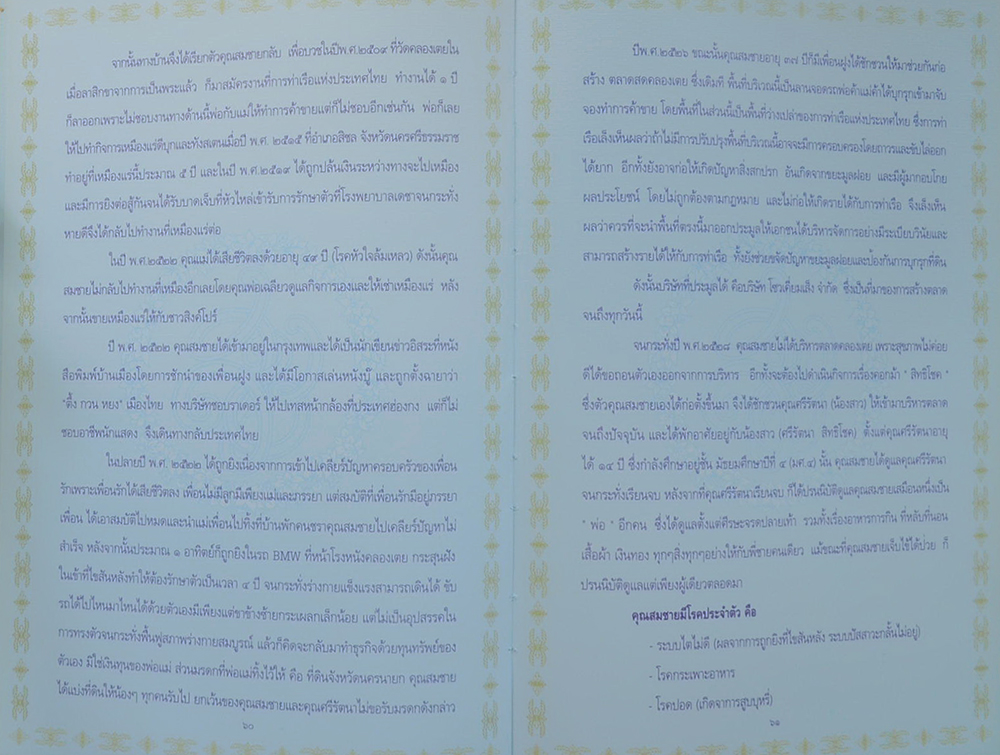 จากนั้นทางบ้านจึงได้เรียกตัวคุณสมชายกลับ เพื่อบวชในปีพ.ศ.๒๕๐๙ ที่วัดคลองเตยใน
เมื่อลาสิกขาจากการเป็นพระแล้ว ก็มาสมัครงานที่การท่าเรือแห่งประเทศไทย ทำงานได้ ๑ ปี
ก็ลาออกเพราะไม่ชอบงานทางด้านนี้พ่อกับแม่ให้ทำการค้าขายแต่ก็ไม่ชอบอีกเช่นกัน พ่อก็เลย
ให้ไปทำกิจการเหมืองแร่ดีบุกและทังสเตนเมื่อปี พ.ศ. ๒๕๑๕ ที่อำเภอสิชล จังหวัดนครศรีธรรมราช
ทำอยู่ที่เหมืองแร่นี้ประมาณ ๕ ปี และในปี พ.ศ.๒๕๑๙ ได้ถูกปล้นเงินระหว่างทางจะไปเหมือง
และมีการยิงต่อสู้กันจนได้รับบาดเจ็บที่หัวไหล่เข้ารับการรักษาตัวที่โรงพยาบาลเดชาจนกระทั่ง
หายดีจึงได้กลับไปทำงานที่เหมืองแร่ต่อ
ในปี พ.ศ.๒๕๒๒ คุณแม่ได้เสียชีวิตลงด้วยอายุ ๔๙ ปี (โรคหัวใจล้มเหลว) ดังนั้นคุณ
สมชายไม่กลับไปทำงานที่เหมืองอีกเลยโดยคุณพ่อเฉลียวดูแลกิจการเองและให้เช่าเหมืองแร่ หลัง
จากนั้นขายเหมืองแร่ให้กับชาวสิงค์โปร์
ปี พ.ศ. ๒๕๒๒ คุณสมชายได้เข้ามาอยู่ในกรุงเทพและได้เป็นนักเขียนข่าวอิสระที่หนัง
สือพิมพ์บ้านเมืองโดยการชักนำของเพื่อนฝูง และได้มีโอกาสเล่นหนังบู๊ และถูกตั้งฉายาว่า
"ตี้ง กวน หยง" เมืองไทย ทางบริษัทชอบราเดอร์ ให้ไปเทสหน้ากล้องที่ประเทศฮ่องกง แต่ก็ไม่
ชอบอาชีพนักแสดง จึงเดินทางกลับประเทศไทย
ในปลายปี พ.ศ. ๒๕๒๒ ได้ถูกยิงเนื่องจากการเข้าไปเคลียร์ปัญหาครอบครัวของเพื่อน
รักเพราะเพื่อนรักได้เสียชีวิตลง เพื่อนไม่มีลูกมีเพียงแม่และภรรยา แต่สมบัติที่เพื่อนรักมีอยู่ภรรยา
เพื่อน ได้เอาสมบัติไปหมดและนำแม่เพื่อนไปทิ้งที่บ้านพักคนชราคุณสมชายไปเคลียร์ปัญหาไม่
สำเร็จ หลังจากนั้นประมาณ ๑ อาทิตย์ก็ถูกยิงในรถ BMW ที่หน้าโรงหนังคลองเตย กระสุนฝัง
ในเข้าที่ไขสันหลังทำให้ต้องรักษาตัวเป็นเวลา ๔ ปี จนกระทั่งร่างกายแข็งแรงสามารถเดินได้ ขับ
รถได้ไปไหนมาไหนได้ด้วยตัวเองมีเพียงแต่ขาข้างซ้ายกระเผลกเล็กน้อย แต่ไม่เป็นอุปสรรคใน
การทรงตัวจนกระทั่งฟื้นฟูสภาพร่างกายสมบูรณ์ แล้วก็คิดจะกลับมาทำธุรกิจด้วยทุนทรัพย์ของ
ตัวเอง มิใช่เงินทุนของพ่อแม่ ส่วนมรดกที่พ่อแม่ทิ้งไว้ให้ คือ ที่ดินจังหวัดนครนายก คุณสมชาย
ได้แบ่งที่ดินให้น้องๆ ทุกคนรับไป ยกเว้นของคุณสมชายและคุณศรีรัตนาไม่ขอรับมรดกดังกล่าว
๖๐
ปีพ.ศ.๒๕๒๖ ขณะนั้นคุณสมชายอายุ ๓๗ ปีก็มีเพื่อนฝูงได้ชักชวนให้มาช่วยกันก่อ
สร้าง ตลาดสดคลองเตย ซึ่งเดิมที พื้นที่บริเวณนี้เป็นลานจอดรถพ่อค้าแม่ค้าได้บุกรุกเข้ามาจับ
จองทำการค้าขาย โดยพื้นที่ในส่วนนี้เป็นพื้นที่ว่างเปล่าของการท่าเรือแห่งประเทศไทย ซึ่งการท่า
เรือเล็งเห็นผลว่าถ้าไม่มีการปรับปรุงพื้นที่บริเวณนี้อาจจะมีการครอบครองโดยถาวรและขับไล่ออก
ได้ยาก อีกทั้งยังอาจก่อให้เกิดปัญหาสิ่งสกปรก อันเกิดจากขยะมูลฝอย และมีผู้มากอบโกย
ผลประโยชน์ โดยไม่ถูกต้องตามกฎหมาย และไม่ก่อให้เกิดรายได้กับการท่าเรือ จึงเล็งเห็น
ผลว่าควรที่จะนำพื้นที่ตรงนี้มาออกประมูลให้เอกชนได้บริหารจัดการอย่างมีระเบียบวินัยและ
สามารถสร้างรายได้ให้กับการท่าเรือ ทั้งยังช่วยขจัดปัญหาขยะมูลฝอยและป้องกันการบุกรุกที่ดิน
ดังนั้นบริษัทที่ประมูลได้ คือบริษัท โชวเคี่ยมเส็ง จำกัด ซึ่งเป็นที่มาของการสร้างตลาด
จนถึงทุกวันนี้
จนกระทั่งปี พ.ศ.๒๕๒๘ คุณสมชายไม่ได้บริหารตลาดคลองเตย เพราะสุขภาพไม่ค่อย
ดีได้ขอถอนตัวเองออกจากการบริหาร อีกทั้งจะต้องไปดำเนินกิจการเรื่องคอกม้า " สิทธิโชค "
ซึ่งตัวคุณสมชายเองได้ก่อตั้งขึ้นมา จึงได้ชักชวนคุณศรีรัตนา (น้องสาว) ให้เข้ามาบริหารตลาด
จนถึงปัจจุบัน และได้พักอาศัยอยู่กับน้องสาว (ศรีรัตนา สิทธิโชค) ตั้งแต่คุณศรีรัตนาอายุ
ได้ ๑๔ ปี ซึ่งกำลังศึกษาอยู่ชั้น มัธยมศึกษาปีที่ ๔ (มศ.๔) นั้น คุณสมชายได้ดูแลคุณศรีรัตนา
จนกระทั่งเรียนจบ หลังจากที่คุณศรีรัตนาเรียนจบ ก็ได้ปรนนิบัติดูแลคุณสมชายเสมือนหนึ่งเป็น
" พ่อ " อีกคน ซึ่งได้ดูแลตั้งแต่ศีรษะจรดปลายเท้า รวมทั้งเรื่องอาหารการกิน ที่หลับที่นอน
เสื้อผ้า เงินทอง ทุกๆสิ่งทุกๆอย่างให้กับพี่ชายคนเดียว แม้ขณะที่คุณสมชายเจ็บไข้ได้ป่วย ก็
ปรนนิบัติดูแลแต่เพียงผู้เดียวตลอดมา
คุณสมชายมีโรคประจำตัว คือ
- ระบบไตไม่ดี (ผลจากการถูกยิงที่ไขสันหลัง ระบบปัสสาวะกลั้นไม่อยู่)
- โรคกระเพาะอาหาร
- โรคปอด (เกิดจาการสูบบุหรี่)
๖๑